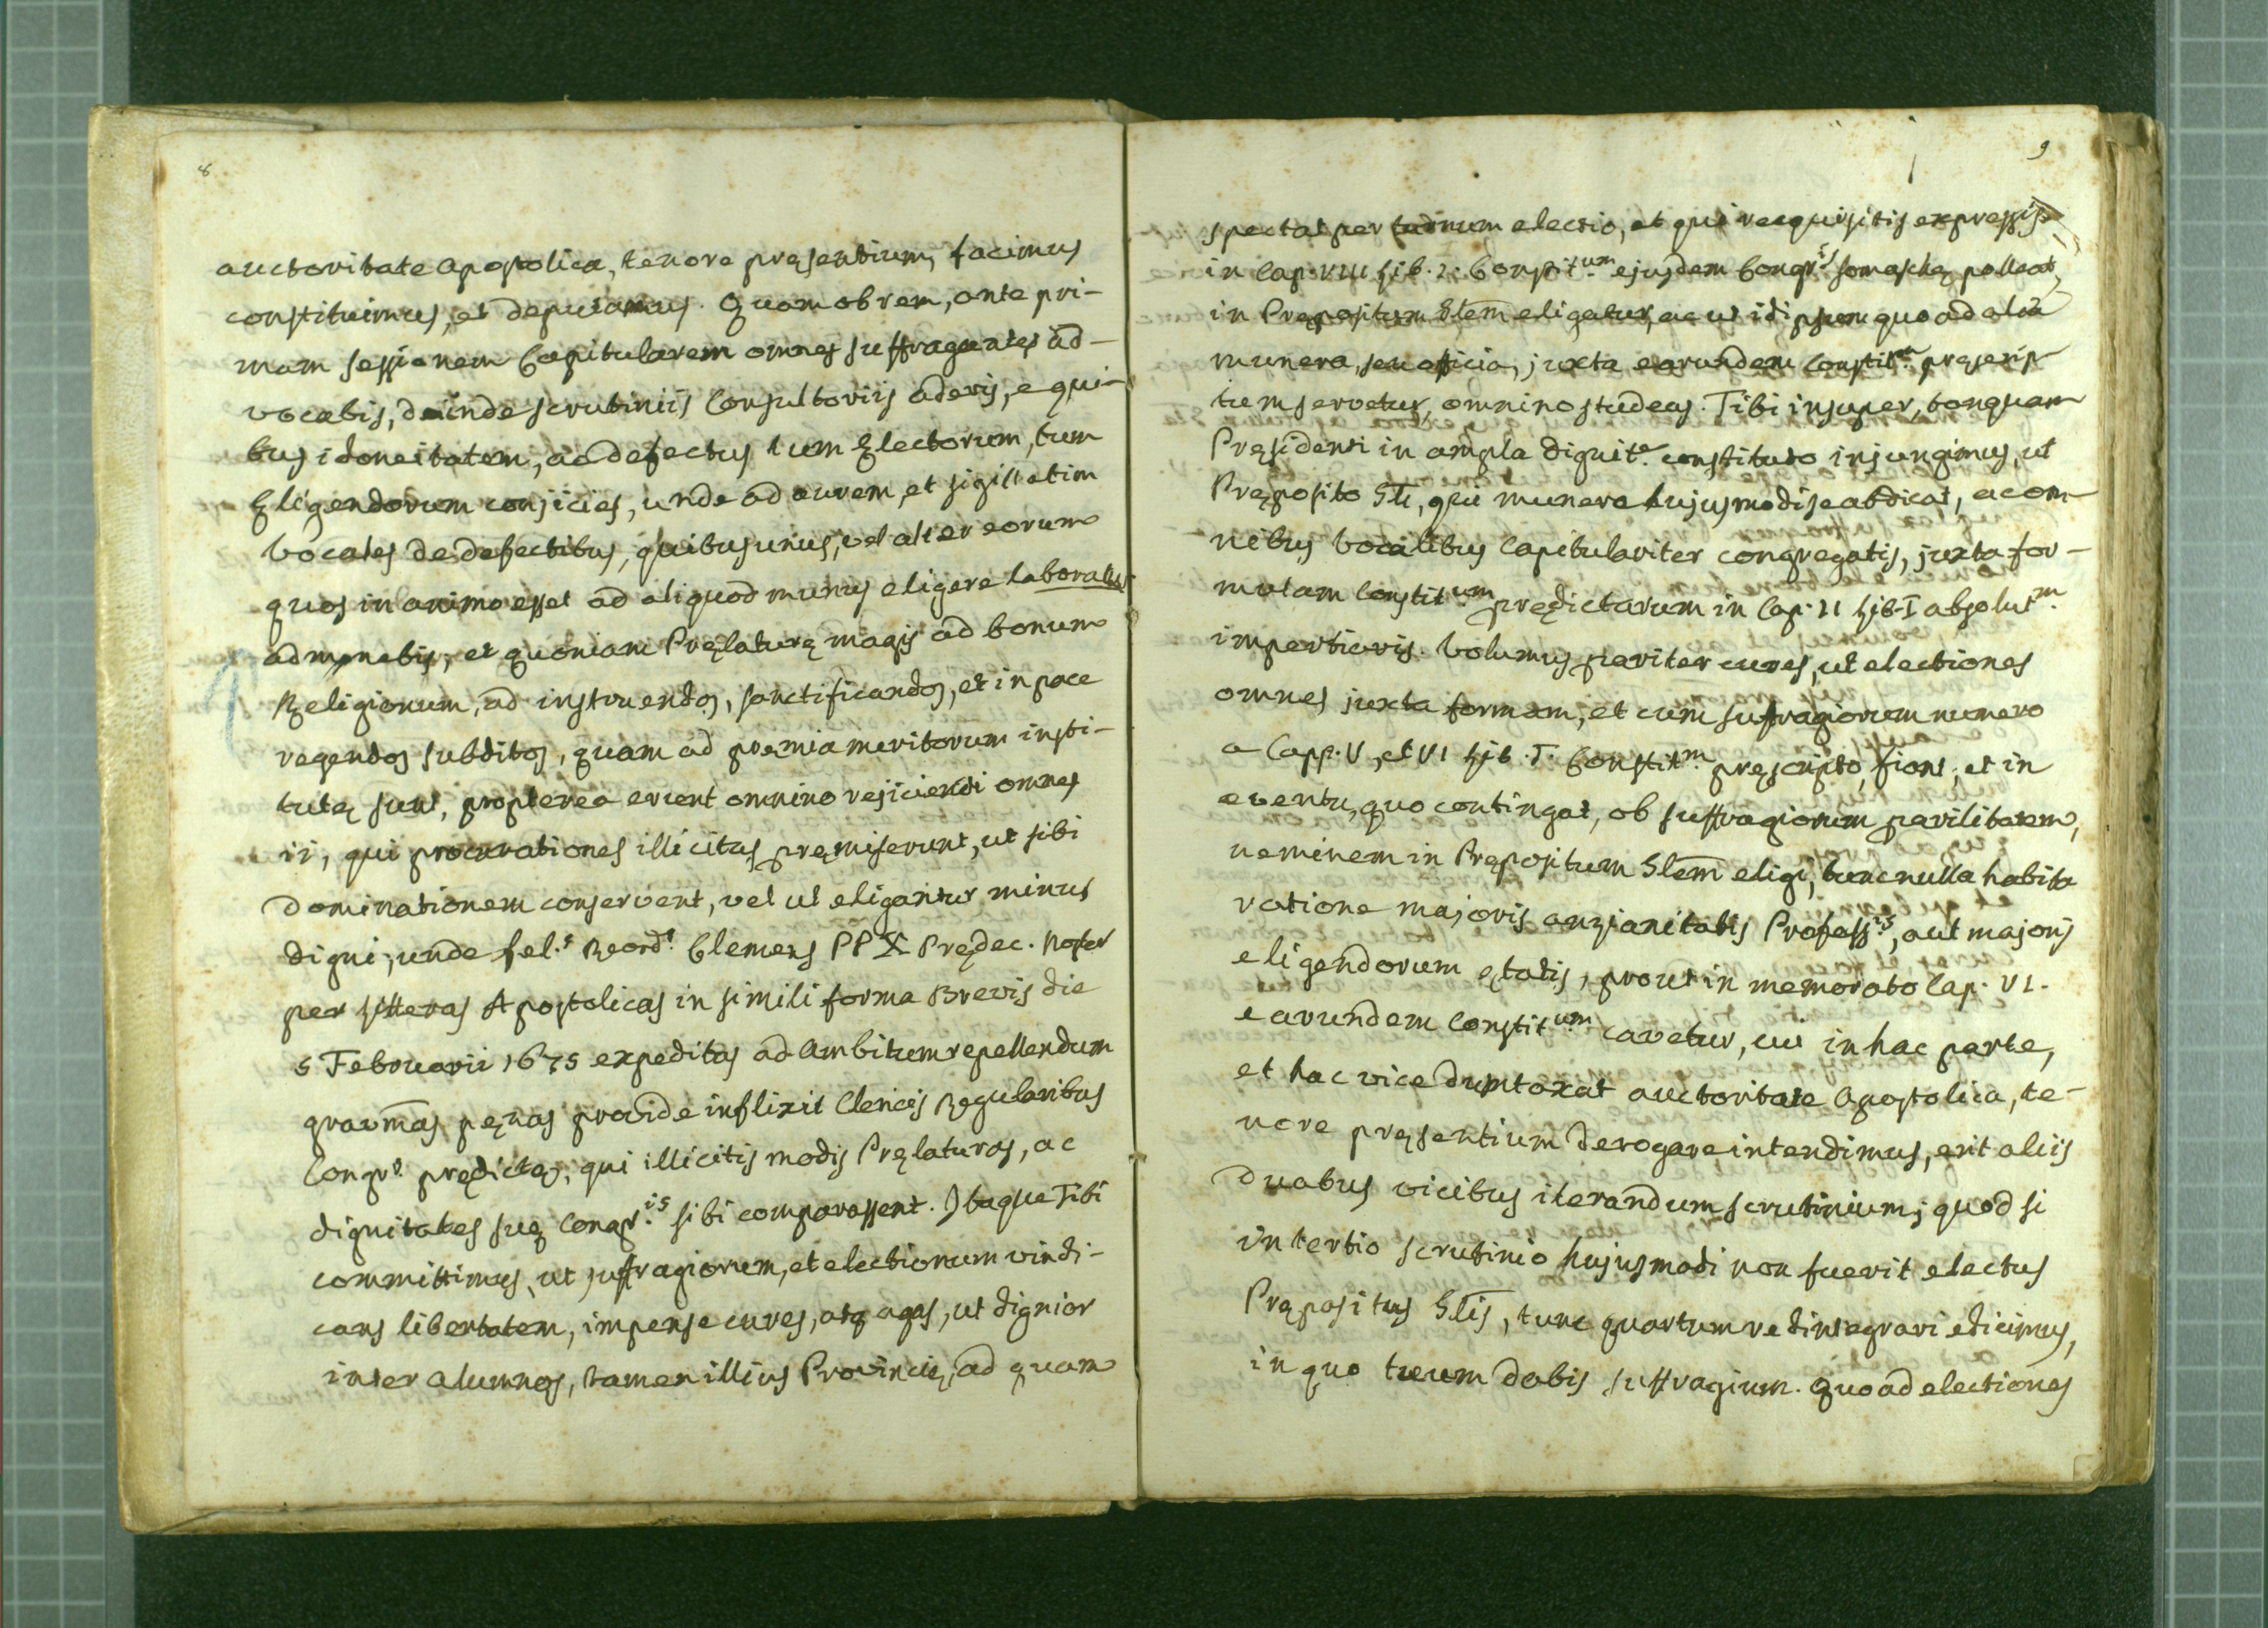 8
auctoritate Apostolica, tenore pręsentium, facimus
constituimus, et deputamus. Quam ob rem, ante pri-
mam sessionem Capitularem omnes suffragantes ad-
vocabis, deinde scrutiniis Consultoriis aderis, e qui-
bus idoneitatem, ac defectus tum Electorum, tum
Eligendorum conjicies, unde ad aurem, et sigillatim
Vocales de defectibus, quibus unus, vel alter eorum
quos in animo esset ad aliquod munus eligere laborat
admonebis; et quoniam Pręlaturę magis ad bonum
Religionum, ad instruendos, sanctificandos, et in pace
regendos subditos, quam ad pręmia meritorum insti-
tutę sunt, propterea erunt omnino rejiciendi omnes
ii, qui procurationes illicitas pręmiserunt, ut sibi
dominationem conservent, vel ut eligantur minus
digni; unde fel.s Reord.s Clemens PP X Prędec. Noster
per Litteras Apostolicas in simili forma Brevis die
5 Februarii 1675 expeditas ad ambitum repellendum
gravm̄as pęnas provide inflixit Clericis Regularibus
Congr.s prędictę, qui illicitis modis Pręlaturas, ac
dignitates suę Congr.is sibi comparassent. Itaque Tibi
committimus, ut suffragiorum, et electionum vindi-
cans libertatem, impense cures, atq agas, ut dignior
inter alumnos, tamen illius Provincię, ad quam
9
spectat per turnum electio, et qui requisitis expressis
in Cap. VIII Lib. 2. Constit.um ejusdem Congr.is Somaschę polleat,
in Prępositum Glem̄ eligatur, ac ut idipsum quoad alia
munera, seu officia, juxta earundem Constit.m pręscrip-
tum servetur, omnino studeas. Tibi insuper, tanquam
Pręsidenti in ampla dignit.e constituto injungimus, ut
Pręposito Gli, qui munere hujusmodi se abdicat, ac om-
nibus Vocalibus Capitulariter congregatis, juxta for-
mulam Constit.um prędictarum in Cap. II Lib. I absolut.m
impertiaris. Volumus pariter cures, ut electiones
omnes juxta formam, et cum suffragiorum numero
a Capp. V, et VI Lib. I. Constit.m pręscripto, fiant; et in
eventu, quo contingat, ob suffragiorum parilitatem,
neminem in Prępositum Glem̄ eligi, tunc nulla habita
ratione majoris anzianitatis Profess.is, aut majoris
eligendorum ętatis, prout in memorato Cap. VI.
earundem Constit.um cavetur, cui in hac parte,
et hac vice dumtaxat auctoritate Apostolica, te-
nore pręsentium derogare intendimus, erit aliis
duabus vicibus iterandum scrutinium; quod si
in tertio scrutinio hujusmodi non fuerit electus
Prępositus Glis, tunc quartum redintegrari edicimus,
in quo tuum dabis suffragium. Quoad electiones